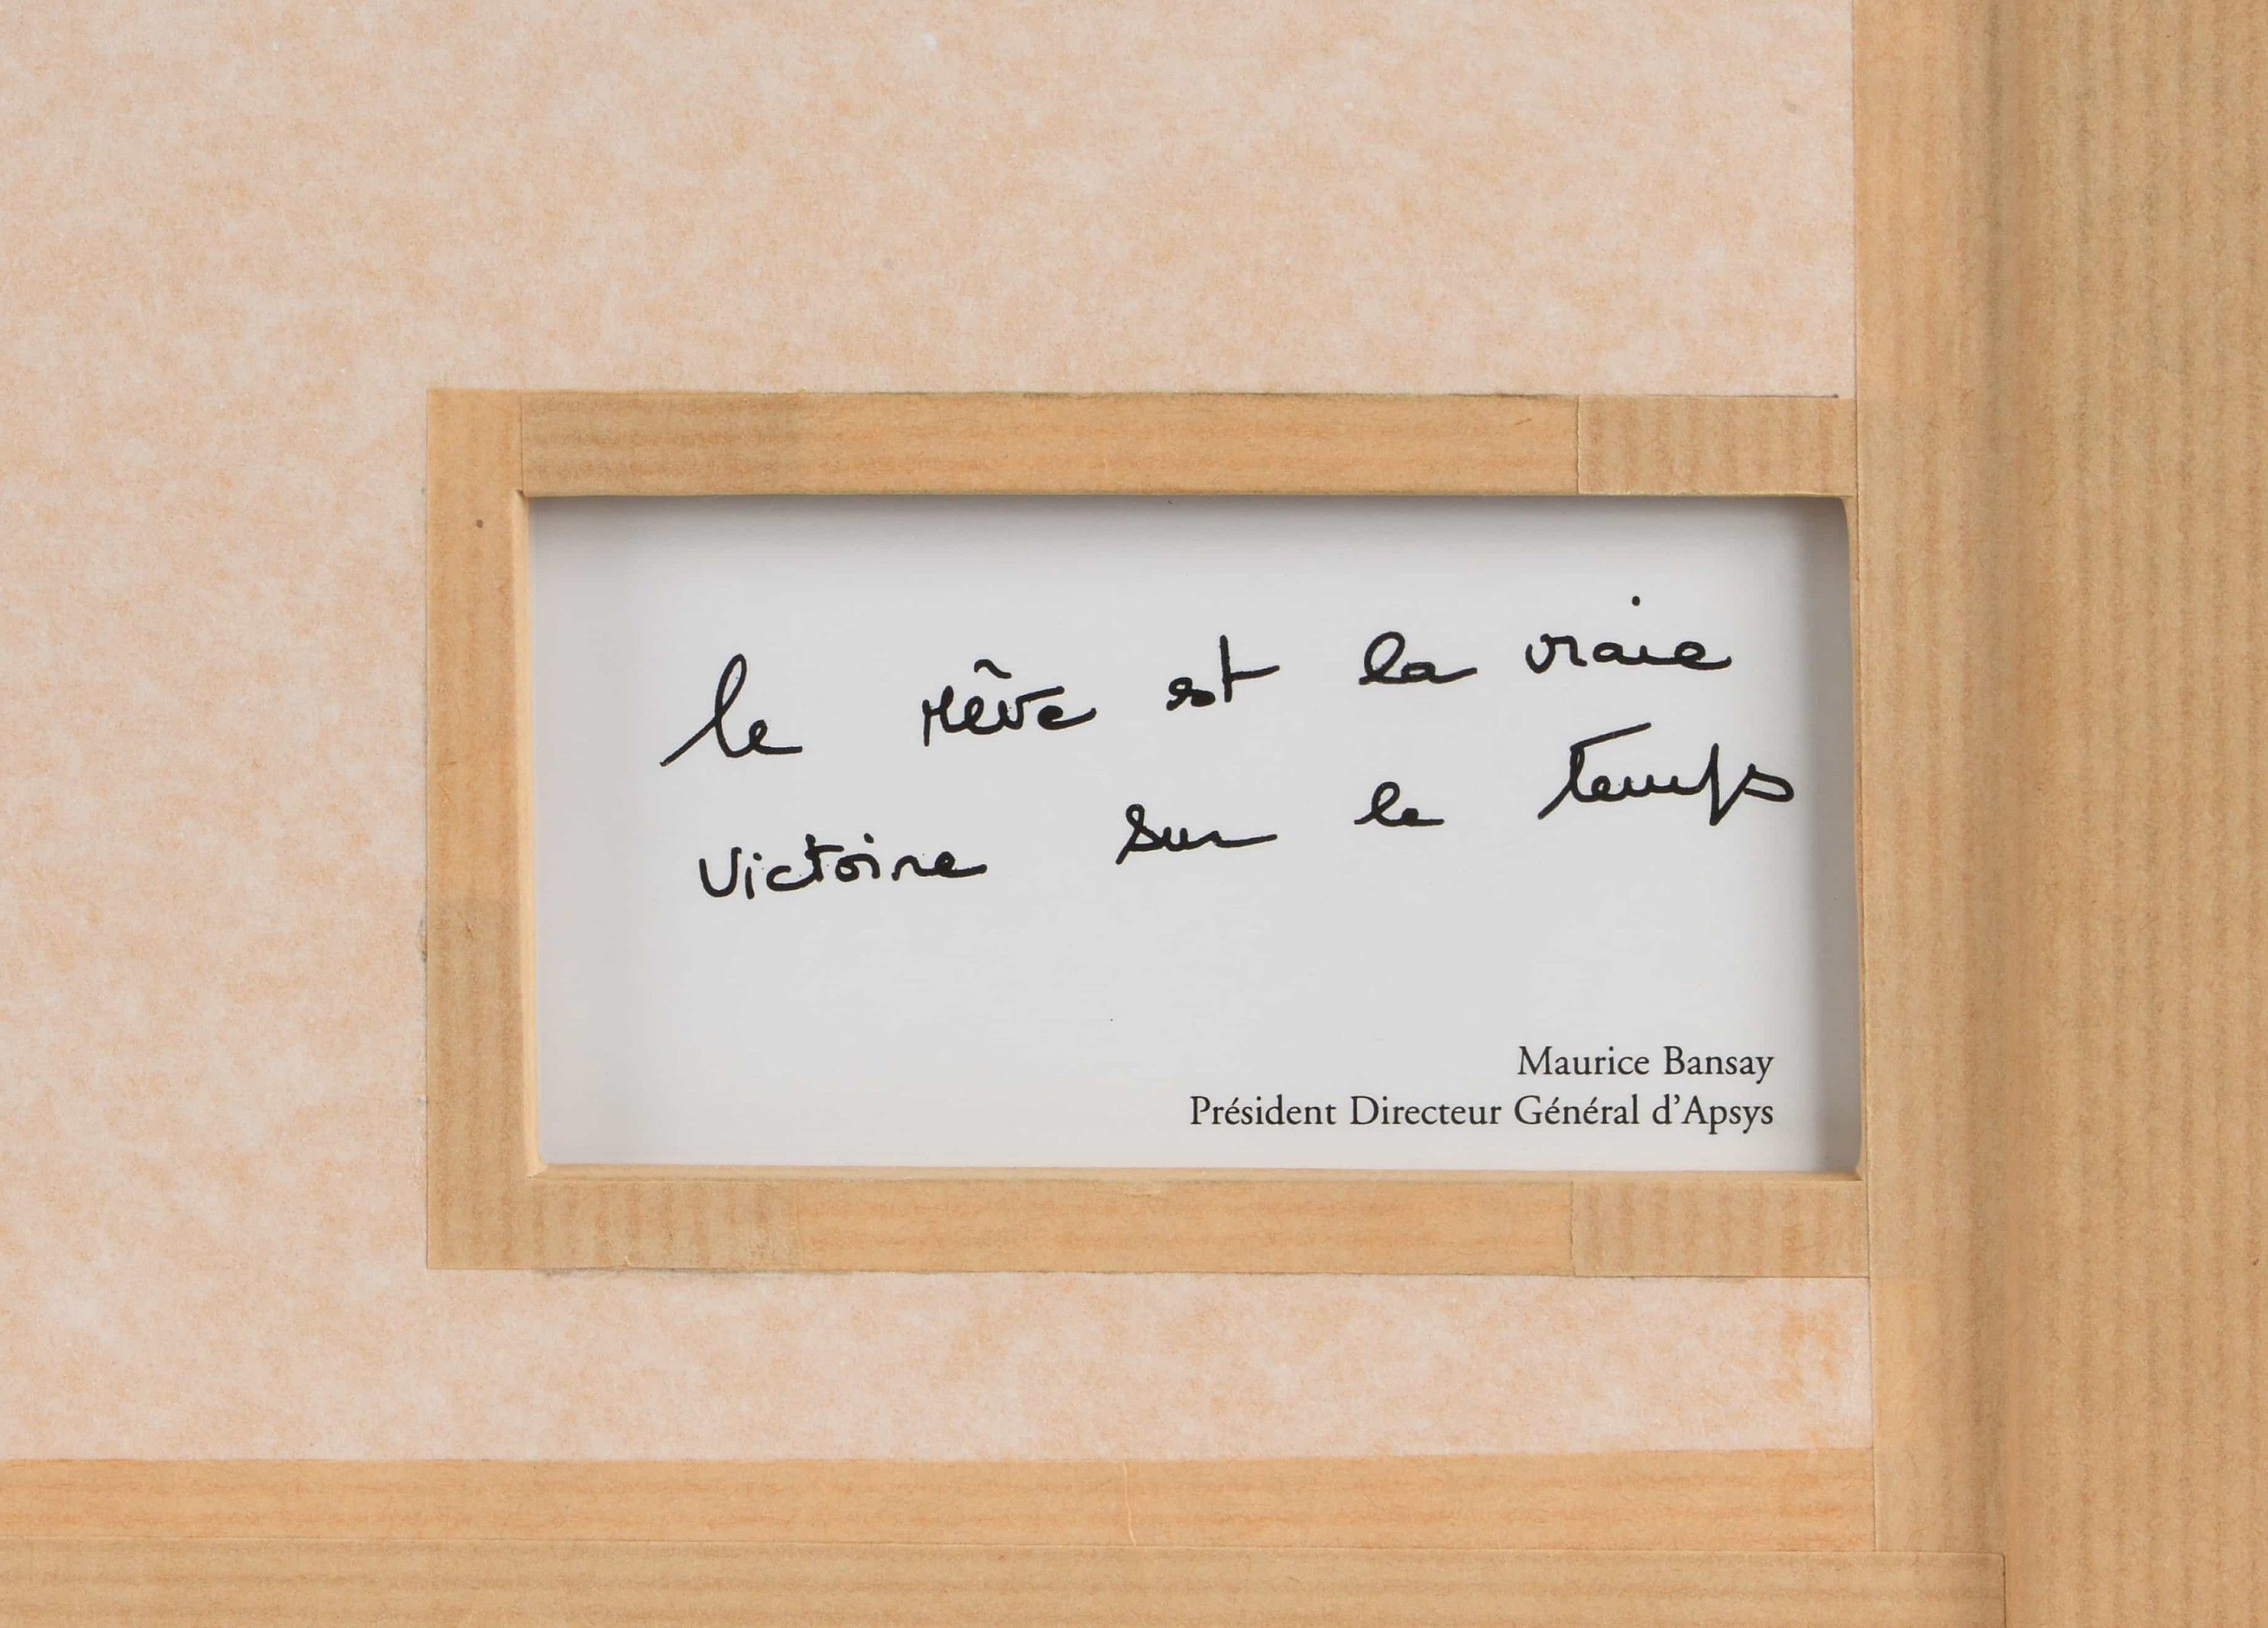 le rêve est la vraie
Victoire sur le temps
Maurice Bansay
Président Directeur Général d'Apsys